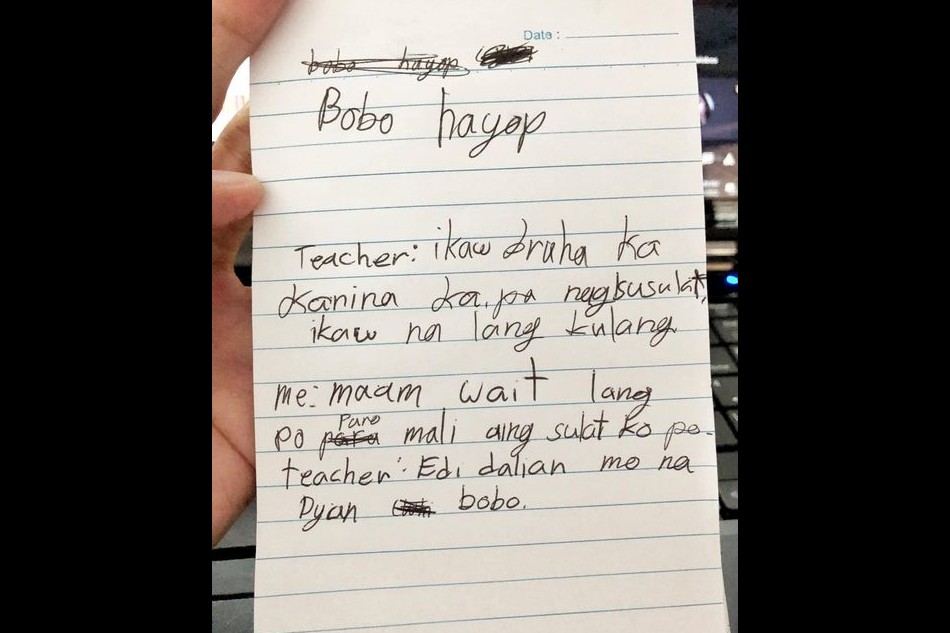 Date:
bobo hayop
Bobo hayop
Teacher: ikaw bruha ka
kanina ka pa nagsusulat,
ikaw na lang kulang
me: maam wait lang
Puro
po para mali aing sulat ko po.
teacher: Edi dalian mo na
Dyan bobo.